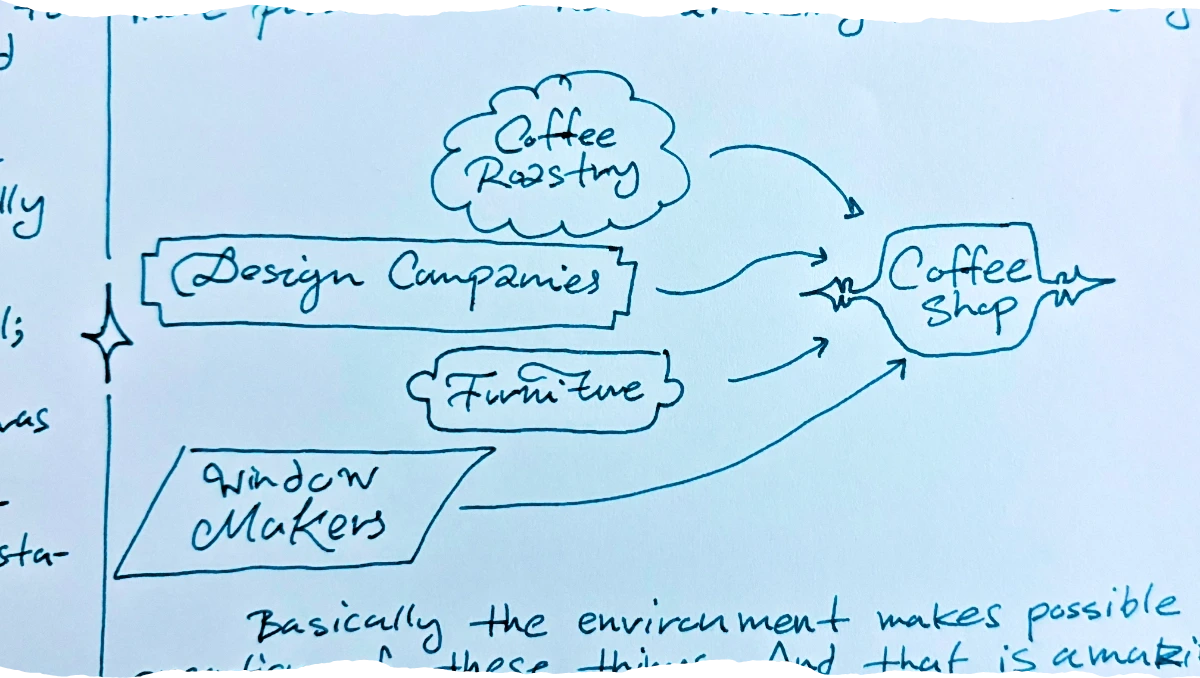 lly
l;
was
sta-
Coffee
Roastry
Design Companies
Furniture
Window
Makers
Coffee
Shop
Basically the envirenment makes possible
these And that is amazi